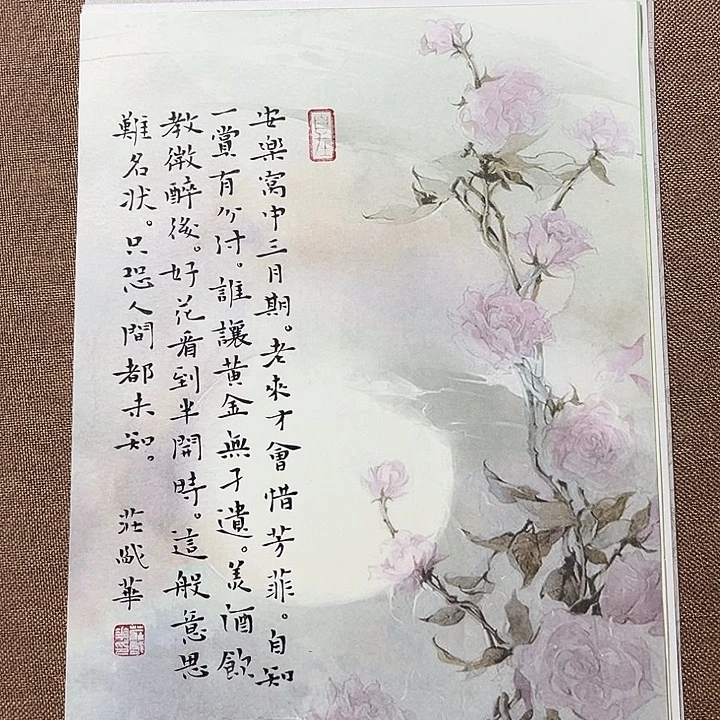 安樂窩中三月期。老來才會惜芳菲。自知
一賞有分付。誰讓黃金無孑遺。美酒飲
教微醉後。好花看到半開時。這般意思
難名狀。只恐人間都未知。
莊 華